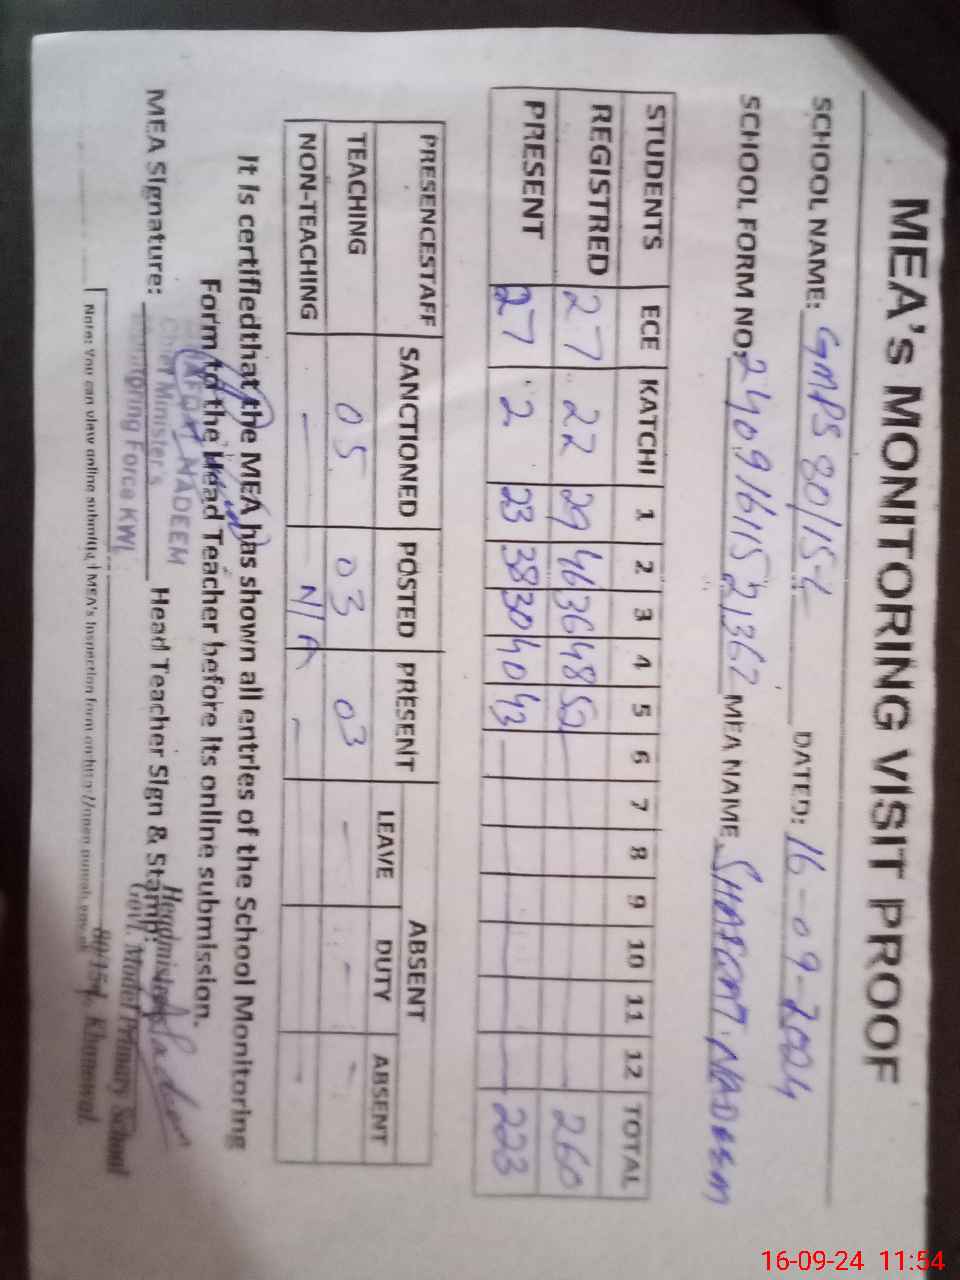 MEA's MONITORING VISIT PROOF
SCHOOL NAME: GMPS 80/15-L DATED: 16-09-2024
SCHOOL FORM NO: MEA NAME NADEEM
STUDENTS ECE KATCHI 1 2 3 4 5 6 7 8 9 10 11 12 TOTAL
REGISTRED 27 22 29 46 36 48 52 260
PRESENT 27 2 23 38 30 40 43 223
PRESENCESTAFF SANCTIONED POSTED PRESENT ABSENT
LEAVE DUTY ABSENT
TEACHING 05 03 03 - - -
NON-TEACHING - N/A - -
It is certifiedthat the MEA has shown all entries of the School Monitoring
Form to the Head Teacher before its online submission.
NADEEM
Chief Minister's
Monitoring Force KWL
MEA Signature: Head Teacher Sign & Stamp:
Govt. Model Primary School
80/15-L Khanewal
Note: You can view online submitted MEA's Inspection form on
16-09-24 11:54